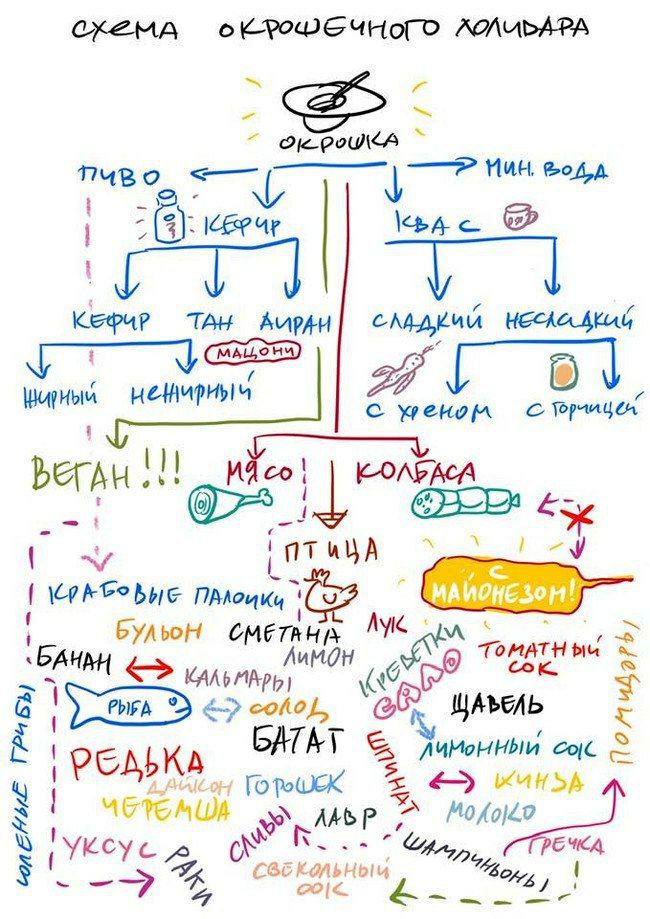 СХЕМА ОКРОШЕЧНОГО ХОЛИВАРА
ОКРОШКА
ПИВО
МИН. ВОДА
КЕФИР
КВАС
КЕФИР ТАН АЙРАН
СЛАДКИЙ НЕСЛАДКИЙ
МАЦОНИ
ЖИРНЫЙ НЕЖИРНЫЙ
С ХРЕНОМ С ГОРЧИЦЕЙ
ВЕГАН!!!
МЯСО
КОЛБАСА
ПТИЦА
С МАЙОНЕЗОМ!
КРАБОВЫЕ ПАЛОЧКИ
БУЛЬОН
СМЕТАНА
ЛУК
БАНАН
ЛИМОН
КАЛЬМАРЫ
КРЕВЕТКИ
САЛО
ТОМАТНЫЙ
СОК
ПОМИДОРЫ
СОЛЕНЫЕ ГРИБЫ
РЫБА
СОЛОД
ЩАВЕЛЬ
БАТАТ
ЛИМОННЫЙ СОК
РЕДЬКА
ДАЙКОН
ГОРОШЕК
ШПИНАТ
КИНЗА
ЧЕРЕМША
ЛАВР
МОЛОКО
УКСУС
РАКИ
СЛИВЫ
СВЕКОЛЬНЫЙ
СОК
ШАМПИНЬОНЫ
ГРЕЧКА